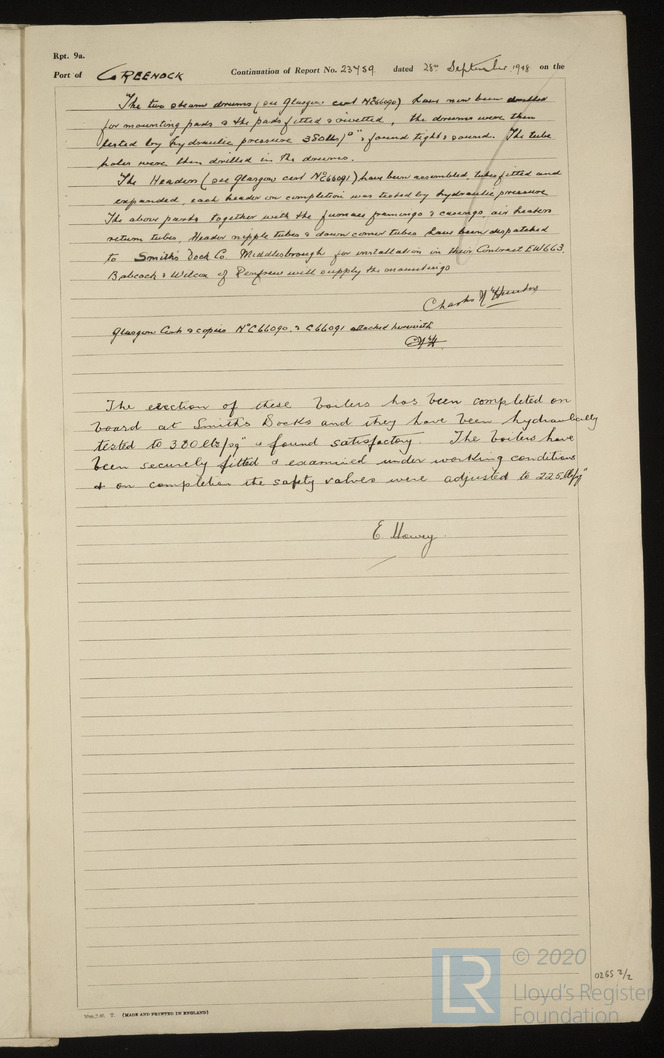 Rpt. 9a.
Port of GREENOCK Continuation of Report No. 23459 dated 28th September 1948 on the
The two steam drums (see Glasgow cert No C66090) have now been drilled
for mounting pads & the pads fitted & rivetted, the drums were then
tested by hydraulic pressure 380 lbs/□" & found tight & sound. The tube
holes were then drilled in the drums.
The Headers (see Glasgow cert No C66091) have been assembled, tubes fitted and
expanded, each header on completion was tested by hydraulic pressure
The above parts together with the furnace framings & casings, air heaters
return tubes, Header nipple tubes & down comer tubes have been dispatched
to Smith's Dock Co. Middlesbrough for installation in their Contract EW663.
Babcock & Wilcox of Renfrew will supply the mountings
Charles
Glasgow Certs & copies No C66090 & C66091 attached herewith
The erection of these boilers has been completed on
board at Smith's Docks and they have been hydraulically
tested to 380 lbs/sq" & found satisfactory. The boilers have
been securely fitted & examined under working conditions
& on completion the safety valves were adjusted to 225 lb/sq"
E. Howey
(MADE AND PRINTED IN ENGLAND)
0265 2/2
LR © 2020
Lloyd's Register
Foundation